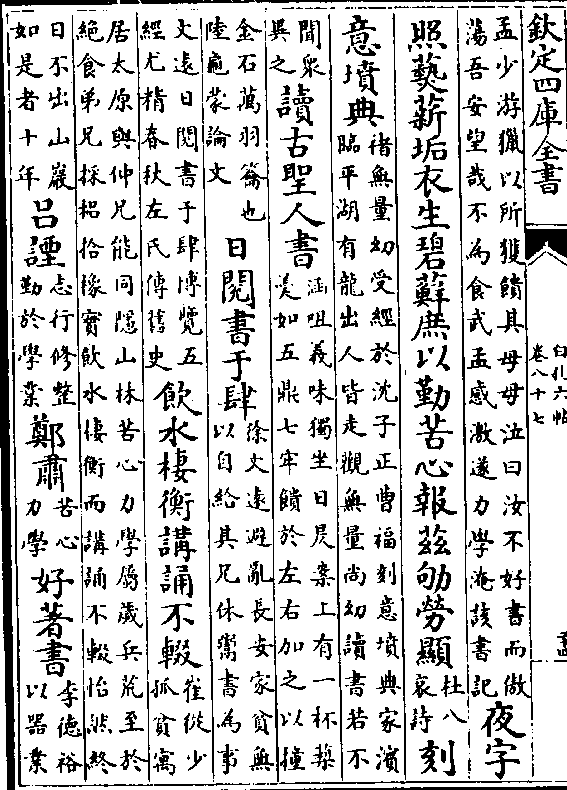 欽定四庫全書
白孔六帖
卷八十七
孟少游獵以所獲饋其母母泣曰汝不好書而傚
蕩吾安望哉不為食武孟感激遂力學淹該書記
夜字
照爇薪垢衣生碧蘚庶以勤苦心報茲劬勞顯
杜八
哀詩
刻
意墳典
褚無量幼受經於沈子正曹福刻意墳典家濱
臨平湖有龍出人皆走觀無量尚幼讀書若不
聞衆
異之
讀古聖人書
涵咀義味獨坐日昃案上有一杯藜
羹如五鼎七牢饋於左右加之以撞
金石萬羽籥也
陸龜蒙論文
日閱書于肆
徐文遠避亂長安家貧無
以自給其兄休鬻書為事
文遠日閱書于肆博覽五
經尤精春秋左氏傳舊史
飲水棲衡講誦不輟
崔從少
孤貧寓
居太原與仲兄能同隱山林苦心力學屬歲兵荒至於
絕食弟兄採梠拾橡實飲水棲衡而講誦不輟怡然終
日不出山巖
如是者十年
呂諲
志行修整
勤於學業
鄭肅
苦心
力學
好著書
李德裕
以器業